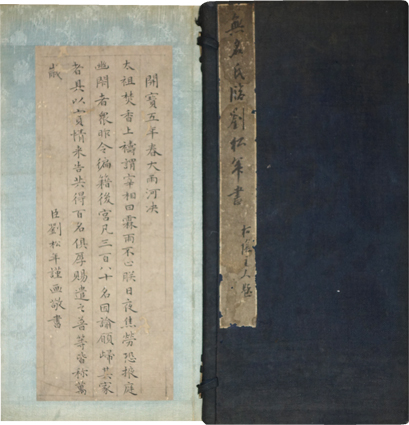 無名氏臨劉松年畫
開寶五年春大雨河決
太祖焚香上禱謂宰相曰霖雨不止朕日夜焦勞恐掖庭
幽閉者眾昨令編籍後宮凡三百八十名因諭願歸其家
者具以實情來告共得百名俱厚賜遣之普等皆稱萬
歲
臣劉松年謹畫敬書